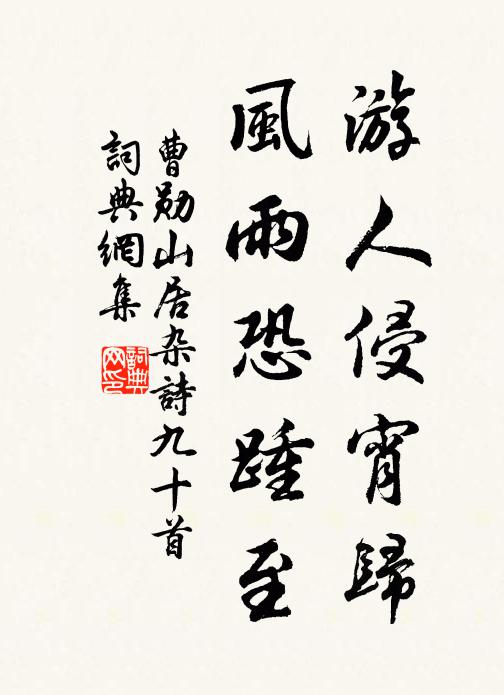 游人侵宵歸
風雨恐踵至
曹勛山居杂詩九十首
詞典網集
詞典网印